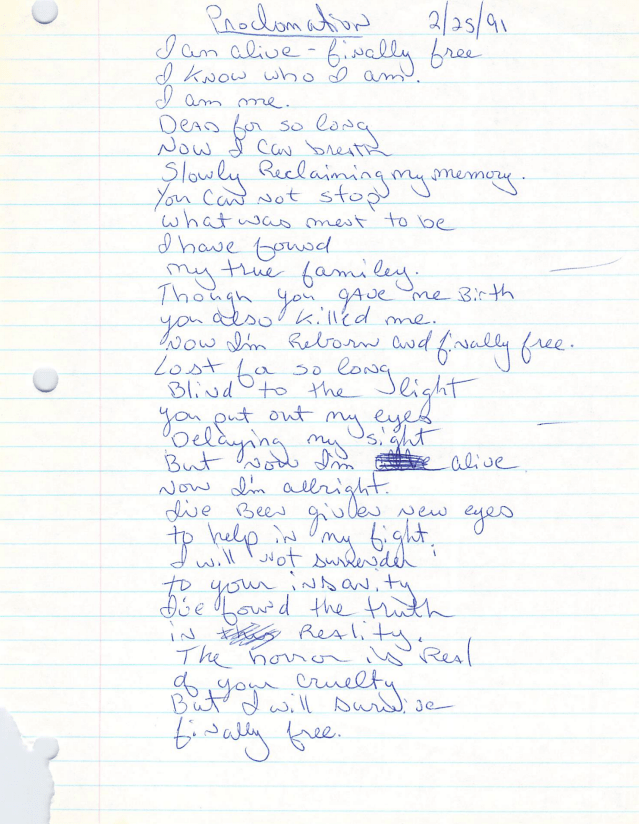 Proclomation 2/25/91
I am alive - finally free
I know who I am.
I am me.
Dead for so long
Now I can breath
Slowly Reclaiming my memory.
You can not stop
what was ment to be
I have found
my true familey.
Though you gave me Birth
you also killed me.
Now I'm Reborn and finally free.
Lost for so long
Blind to the light
you put out my eyes
Delaying my sight
But now I'm alive
Now I'm allright.
I've Been given new eyes
to help in my fight.
I will not surrender
to your insanity
I've found the truth
in Reality.
The horror is Real
of your cruelty
But I will survive
finally free.